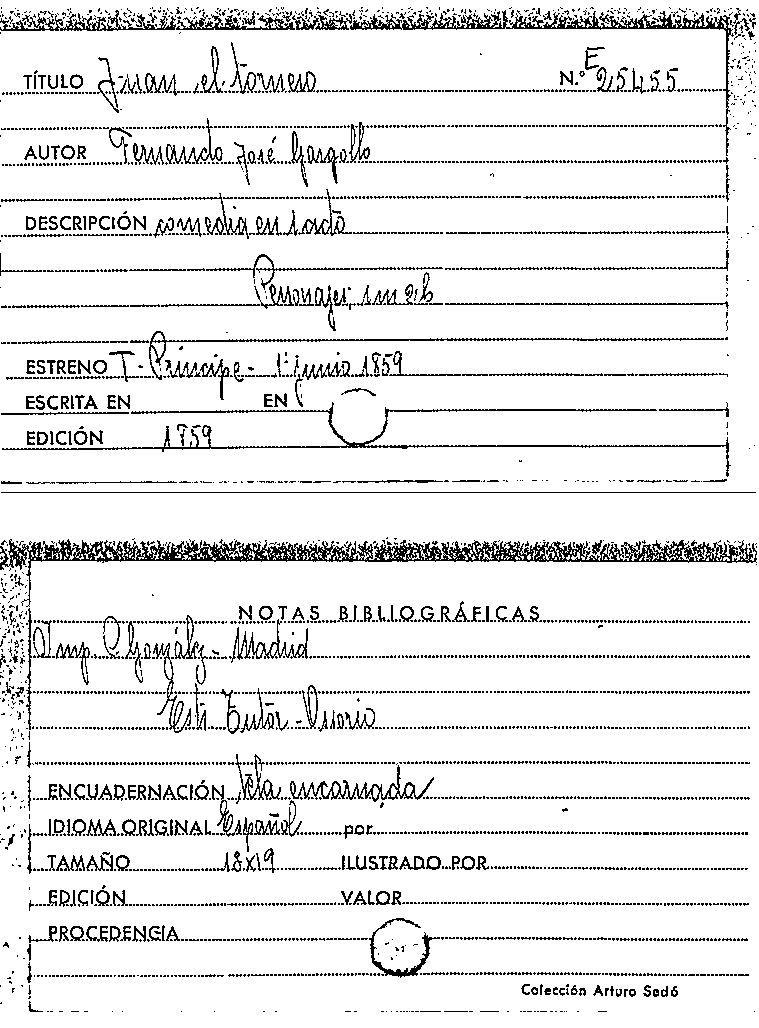 TÍTULO Juan el tornero N.º E 25455
AUTOR Fernando José Gargollo
DESCRIPCIÓN comedia en 1 acto
Personajes, 1m 2h
ESTRENO T. Príncipe - 1º junio 1859
ESCRITA EN EN
EDICIÓN 1859
NOTAS BIBLIOGRÁFICAS
Imp. González - Madrid
Osorio
ENCUADERNACIÓN tela encarnada
IDIOMA ORIGINAL Español por
TAMAÑO 18x19 ILUSTRADO POR
EDICIÓN VALOR
PROCEDENCIA
Colección Arturo Sedó